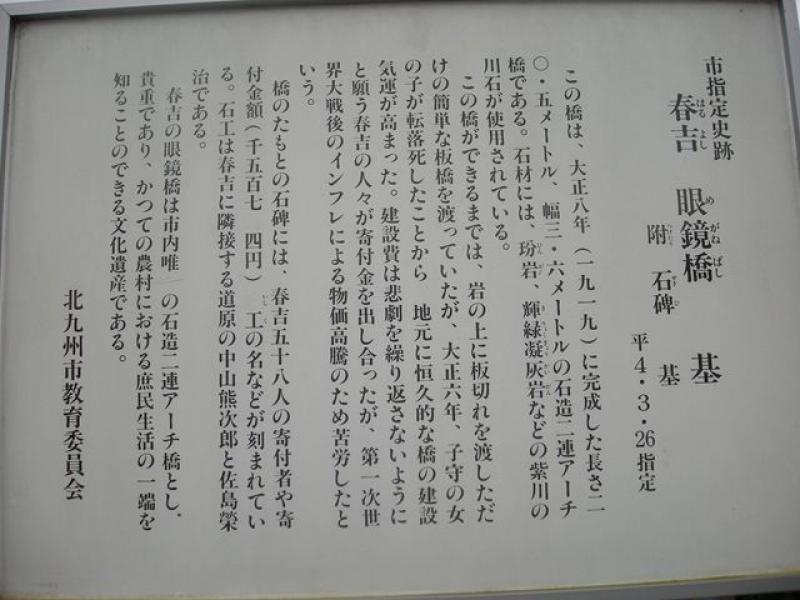 市指定史跡
春吉 眼鏡橋 基
はる よし め がね ばし
附 石碑 基
平4・3・26指定
この橋は、大正八年（一九一九）に完成した長さ二
〇・五メートル、幅三・六メートルの石造二連アーチ
橋である。石材には、玢岩、輝緑凝灰岩などの紫川の
川石が使用されている。
この橋ができるまでは、岩の上に板切れを渡しただ
けの簡単な板橋を渡っていたが、大正六年、子守の女
の子が転落死したことから 地元に恒久的な橋の建設
気運が高まった。建設費は悲劇を繰り返さないように
と願う春吉の人々が寄付金を出し合ったが、第一次世
界大戦後のインフレによる物価高騰のため苦労したと
いう。
橋のたもとの石碑には、春吉五十八人の寄付者や寄
付金額（千五百七 四円） 工の名などが刻まれてい
る。石工は春吉に隣接する道原の中山熊次郎と佐島榮
治である。
春吉の眼鏡橋は市内唯 の石造二連アーチ橋とし、
貴重であり、かつての農村における庶民生活の一端を
知ることのできる文化遺産である。
北九州市教育委員会